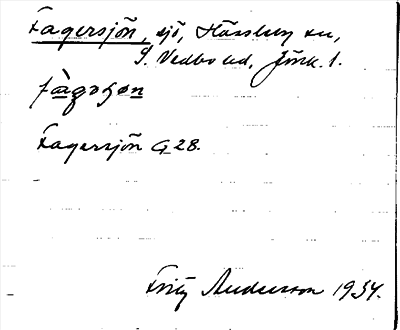 Fagersjön, sjö, Hässleby sn,
S. Vedbo hd, Jönk. l.
fàgəʂøn
Fagersjön G 28.
Fritz Anderson 1934.